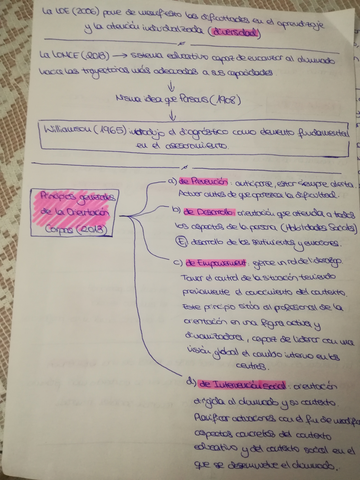 La LOE (2006) pone de manifiesto las dificultades en el aprendizaje
y la atención individualizada (diversidad)
La LOMCE (2013) → sistema educativo capaz de encauzar al alumnado
hacia las trayectorias más adecuadas a sus capacidades
Misma idea que Parsons (1908)
Williamson (1965) introdujo el diagnóstico como elemento fundamental
en el asesoramiento.
Principios generales
de la Orientación
Corpas (2018)
a) de Prevención: anticiparse, estar siempre alerta.
Actuar antes de que aparezca la dificultad.
b) de Desarrollo: orientación que atienda a todos
los aspectos de la persona (Habilidades Sociales)
(E) desarrollo de los sentimientos y emociones.
c) de Empowerment: ejerce un rol de liderazgo
Tener el control de la situación teniendo
previamente el conocimiento del contexto.
Este principio sitúa al profesional de la
orientación en una figura activa y
dinamizadora, capaz de liderar con una
visión global el cambio interno en los
centros.
d) de Intervención social: orientación
dirigida al alumnado y su contexto.
Planificar actuaciones con el fin de modificar
aspectos concretos del contexto
educativo y del contexto social en el
que se desenvuelve el alumnado.